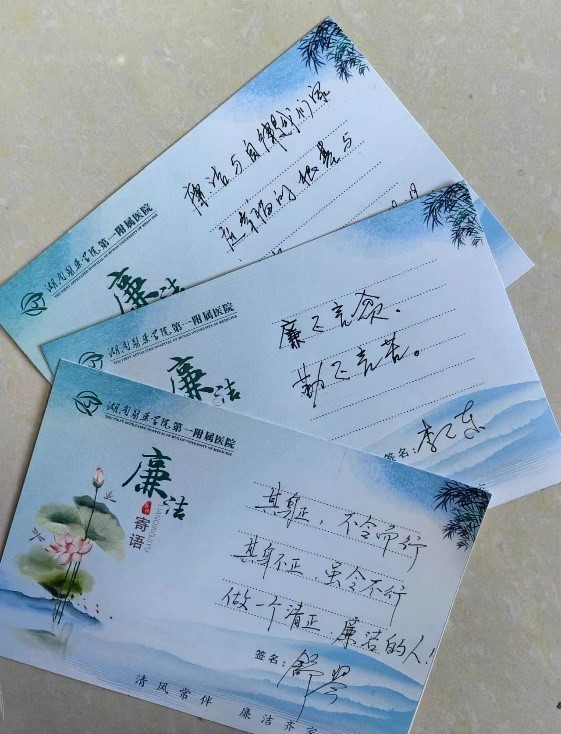 廉洁与自律是我们家
庭幸福的基点与
湖南医药学院第一附属医院
THE FIRST AFFILIATED HOSPITAL OF HUNAN UNIVERSITY OF MEDICINE
廉洁
廉不言贫,
勤不言苦。
签名:
湖南医药学院第一附属医院
THE FIRST AFFILIATED HOSPITAL OF HUNAN UNIVERSITY OF MEDICINE
廉洁
湖南医药学院第一附属医院
THE FIRST AFFILIATED HOSPITAL OF HUNAN UNIVERSITY OF MEDICINE
廉洁
寄语
LIANJIEJIYU
其身正,不令而行
其身不正,虽令不行
做一个清正 廉洁的人!
签名:
清风常伴 廉洁齐家